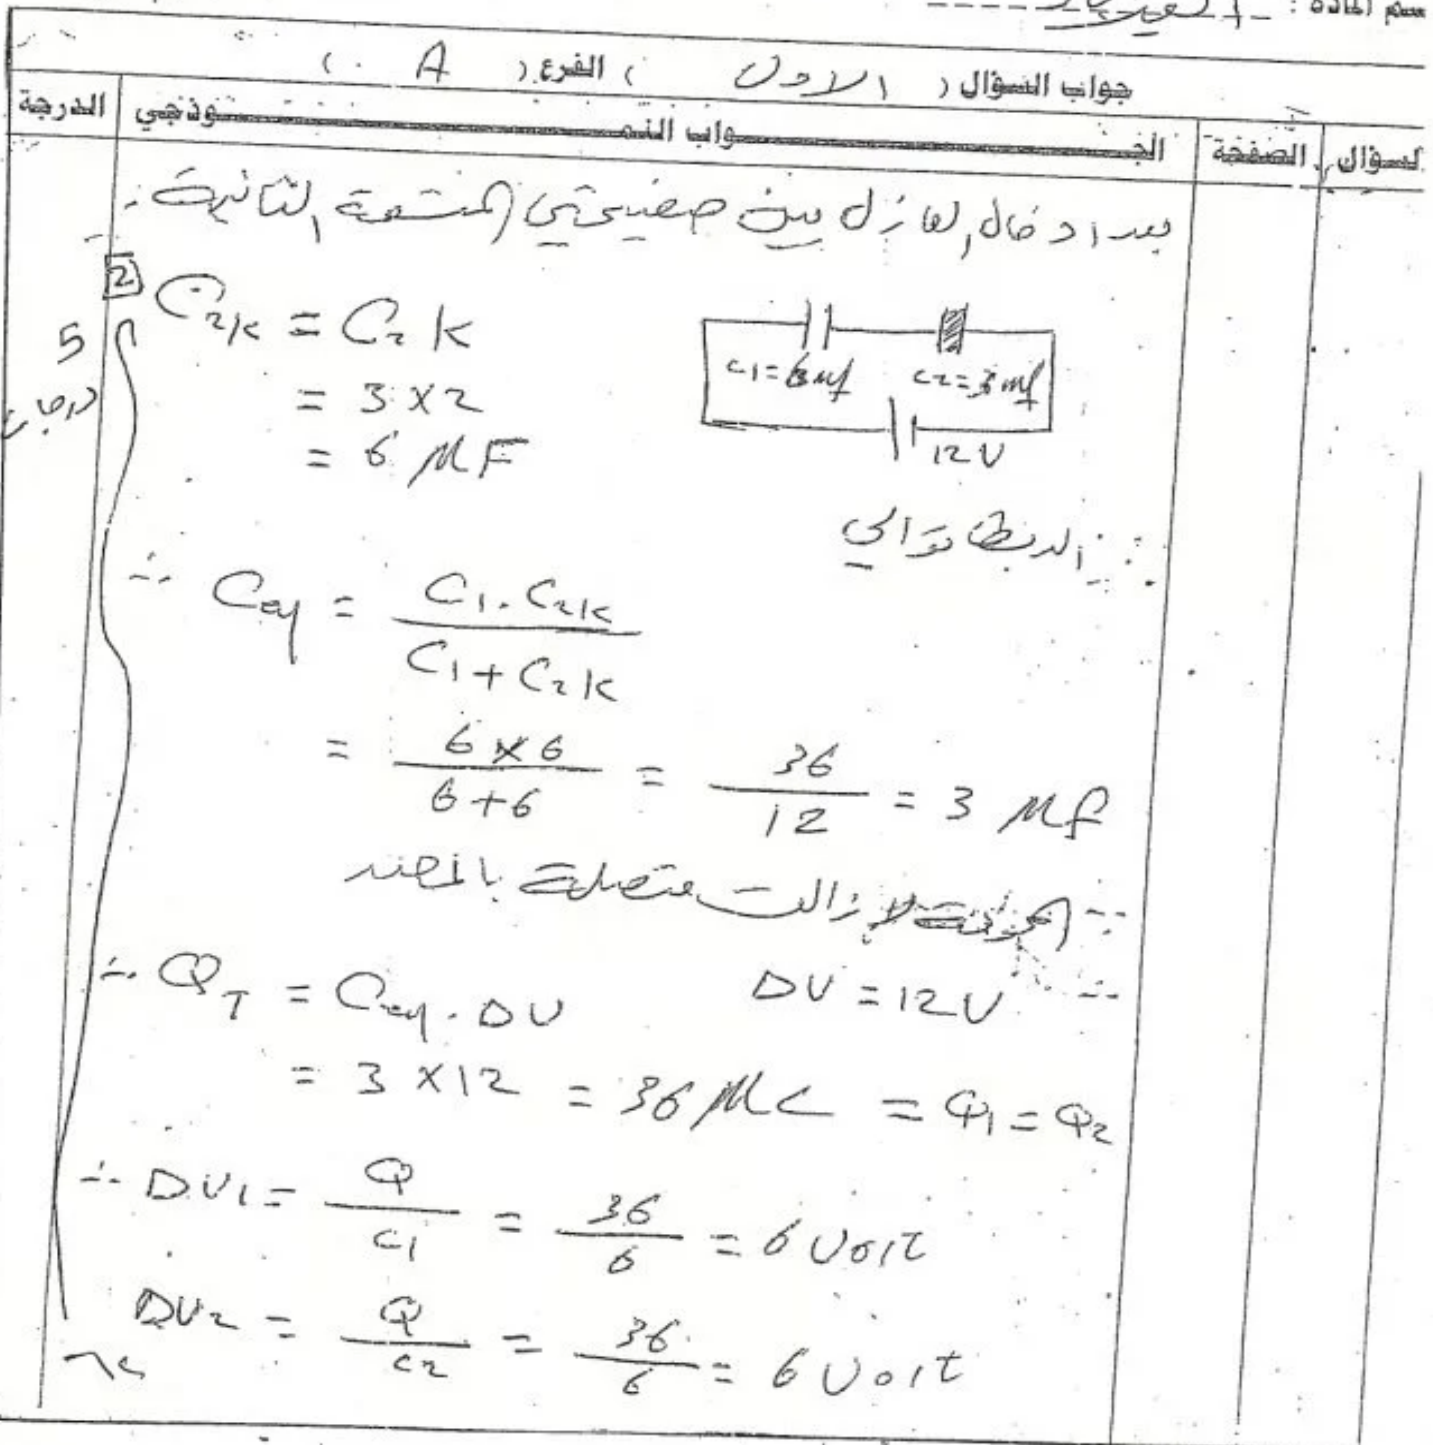 اسم المادة : الفيزياء
جواب السؤال ( الاول ) الفرع ( A )
السؤال الصفحة الجـــواب النمـــوذجي الدرجة
بعد ادخال العازل بين صفيحتي المتسعة الثانية :
2
5 درجات
C2k = C2 k
= 3 × 2
= 6 MF
C1 = 6 mf C2 = 3 mf
12 V
∵ الربط توالي
∴ Ceq = C1 . C2k / C1 + C2k
= 6 × 6 / 6 + 6 = 36 / 12 = 3 Mf
∵ المجموعة لازالت متصلة بالمصدر
∴ DV = 12 V
∴ QT = Ceq . DV
= 3 × 12 = 36 MC = Q1 = Q2
∴ DV1 = Q / C1 = 36 / 6 = 6 Volt
DV2 = Q / C2 = 36 / 6 = 6 Volt